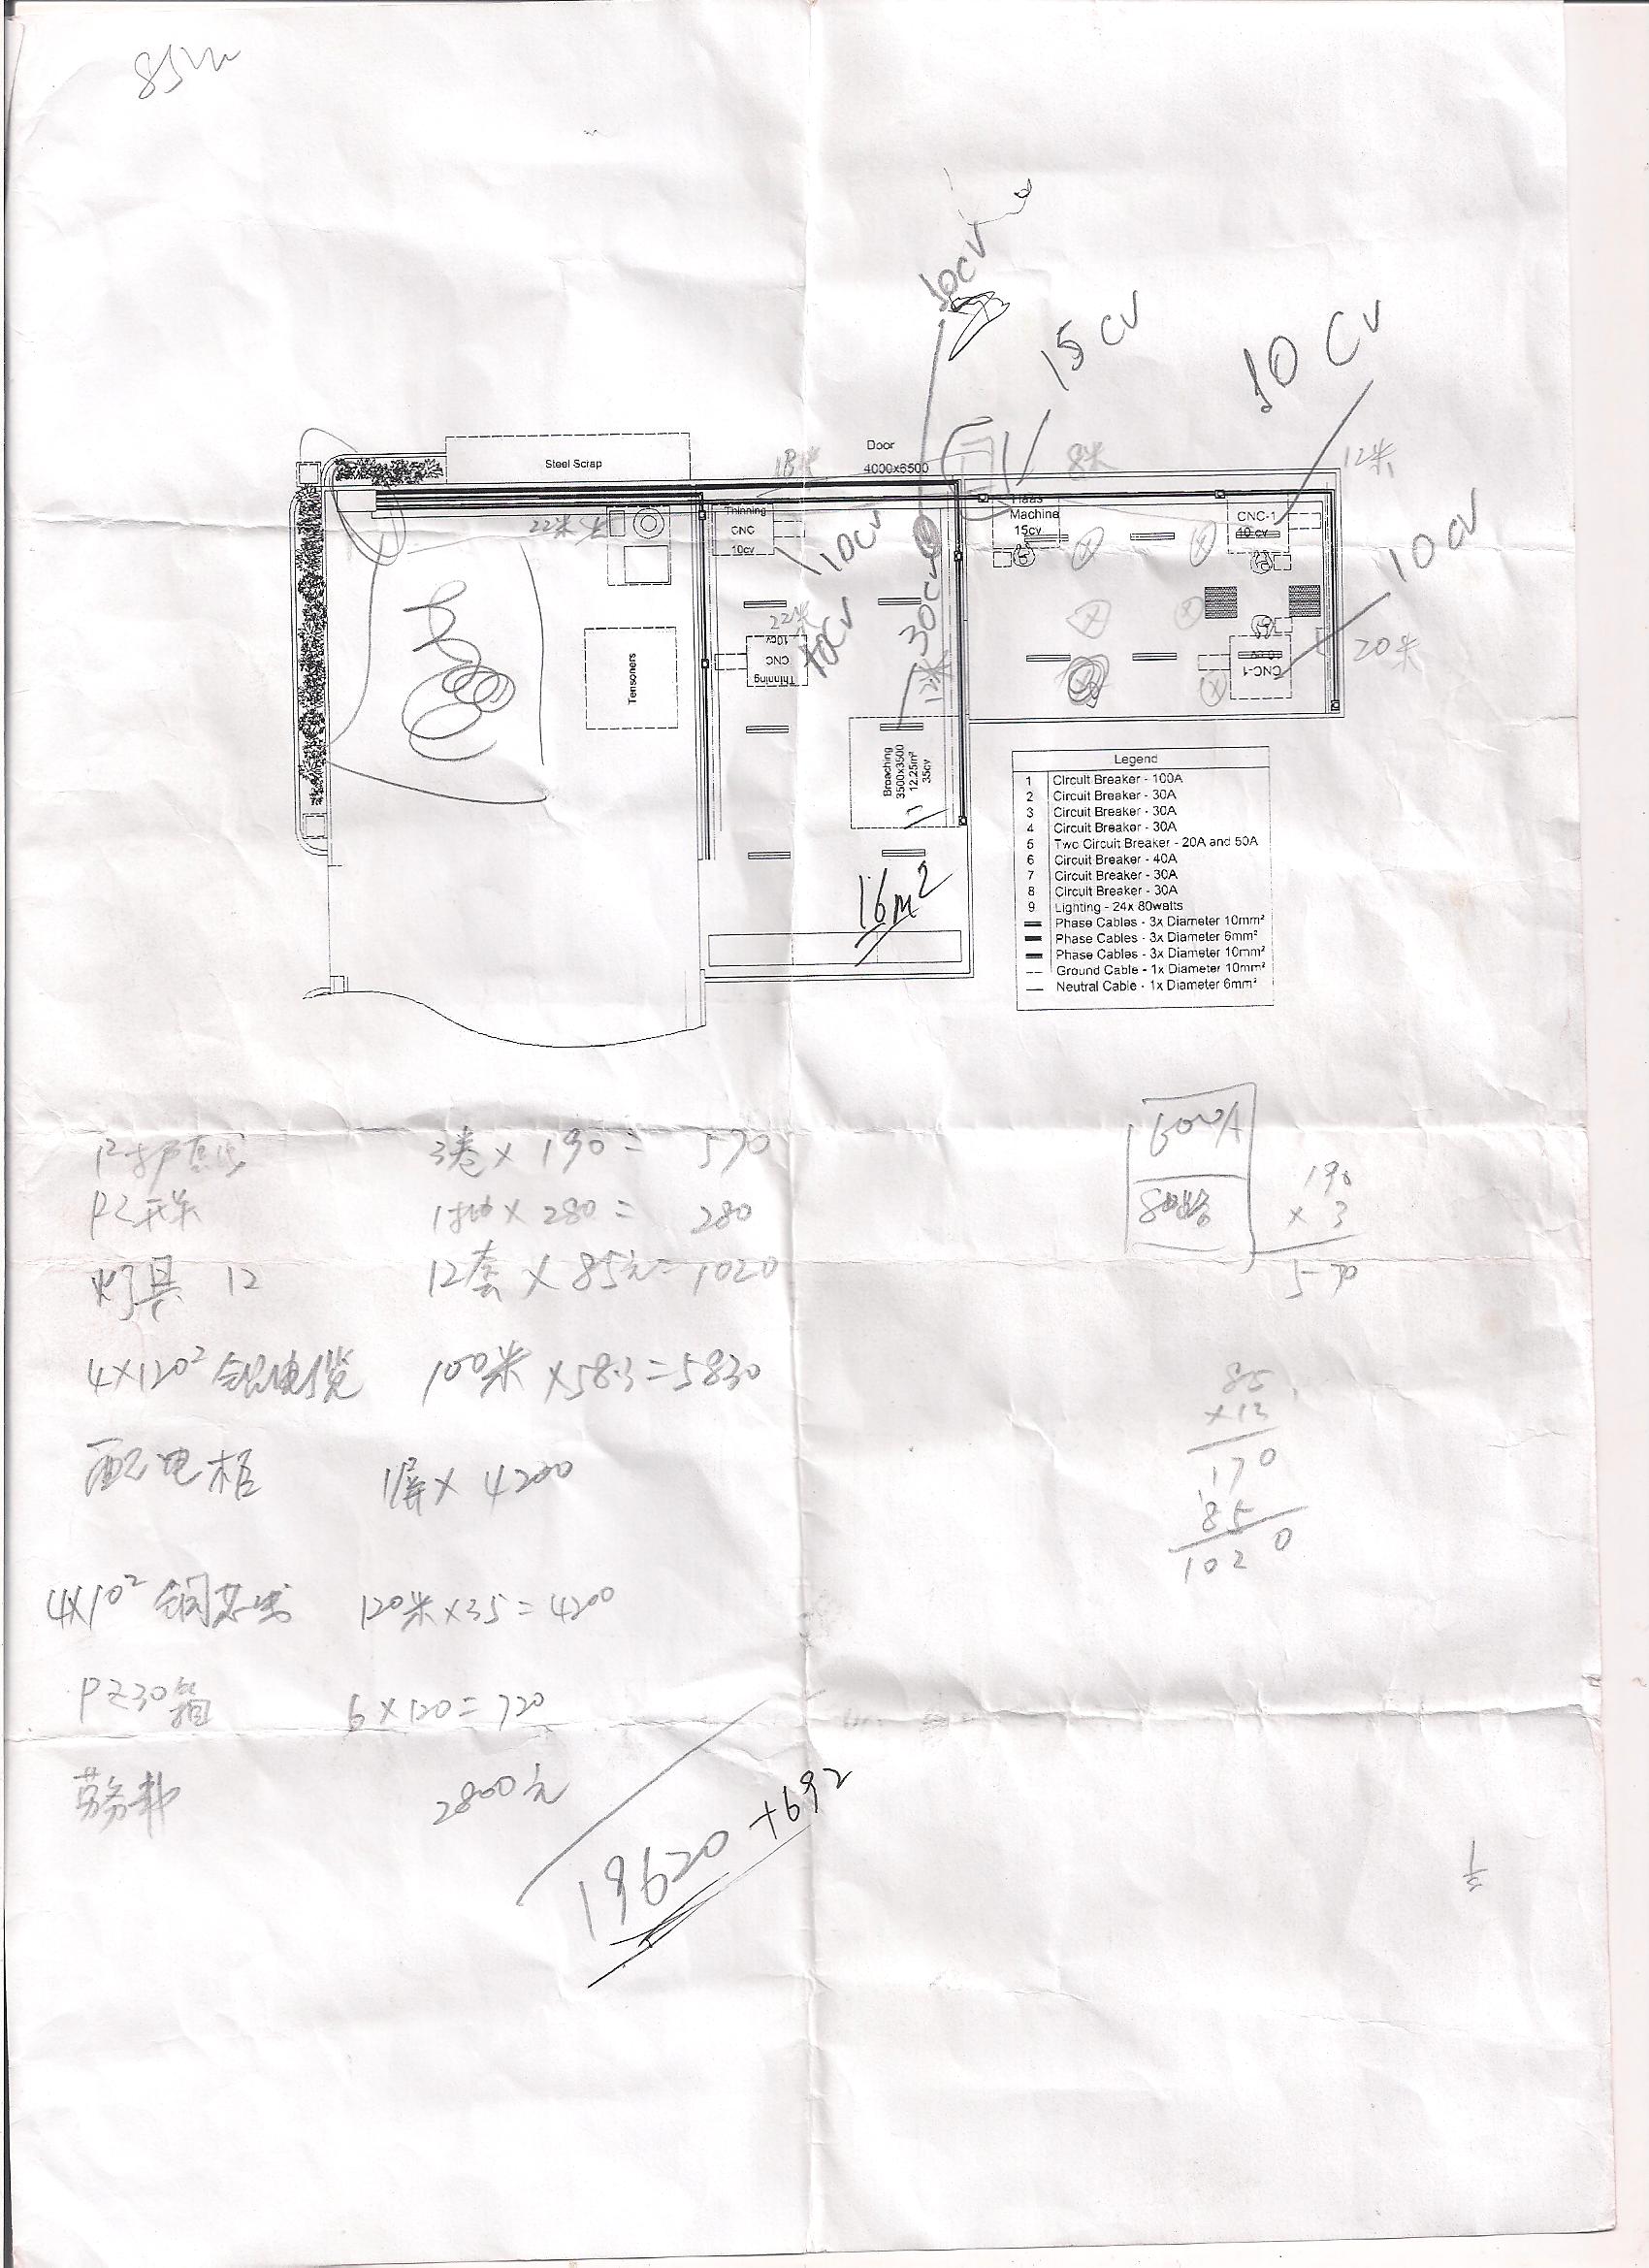 10cv
15cv
10 CV
Door
4000x6500
Steel Scrap
18米
8米
12米
22米
Thinning
CNC
10cv
10cv
Haas
Machine
15cv
CNC-1
10 cv
10 CV
22米
10cv
CNC
Thinning
10CV
30CV
12米
Tensoners
CNC-1
20米
Broaching
3500x3500
12.25m²
35cv
16m²
Legend
1 Circuit Breaker - 100A
2 Circuit Breaker - 30A
3 Circuit Breaker - 30A
4 Circuit Breaker - 30A
5 Two Circuit Breaker - 20A and 50A
6 Circuit Breaker - 40A
7 Circuit Breaker - 30A
8 Circuit Breaker - 30A
9 Lighting - 24x 80watts
Phase Cables - 3x Diameter 10mm²
Phase Cables - 3x Diameter 6mm²
Phase Cables - 3x Diameter 10mm²
Ground Cable - 1x Diameter 10mm²
Neutral Cable - 1x Diameter 6mm²
3卷 × 190 = 570
× 280 = 280
灯具 12 12套 × 85元 = 1020
4×120² 铝电缆 100米 × 58.3 = 5830
配电柜 1屏 × 4200
4×10² 铜芯线 120米 × 35 = 4200
PZ30箱 6 × 120 = 720
劳务费 2800元
19620 + 692
600A
190
× 3
570
85
×12
170
85
1020